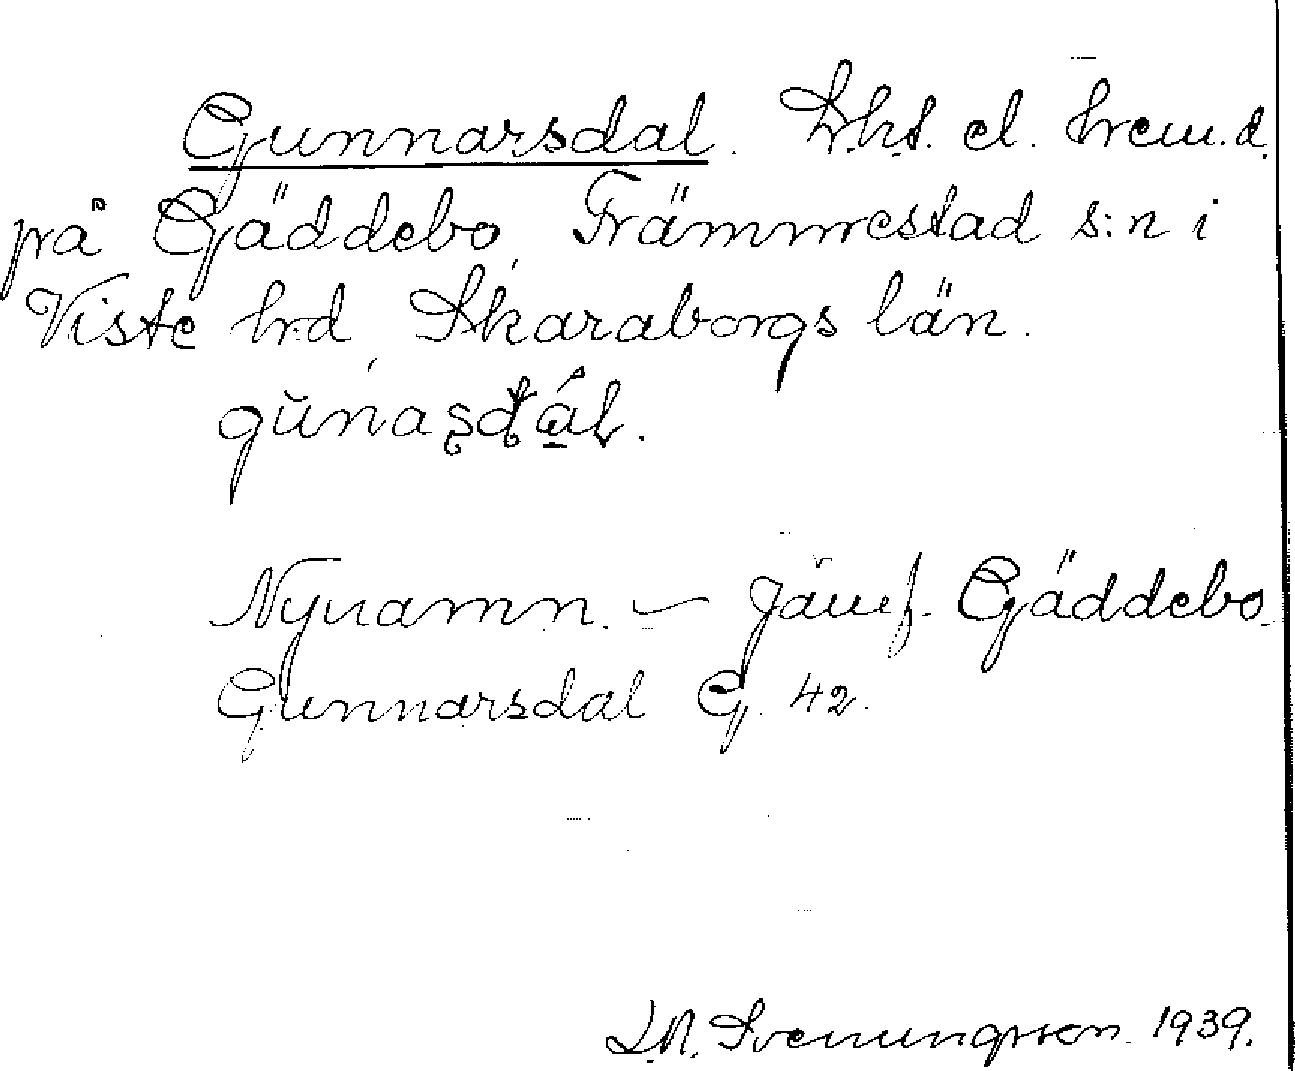 Gunnarsdal. Lht. el. hem.d.
på Gäddebo, Främmestad s:n i
Viste hrd, Skaraborgs län.
Nynamn. – Jämf. Gäddebo
Gunnarsdal G. 42.
Svenungsson 1939.